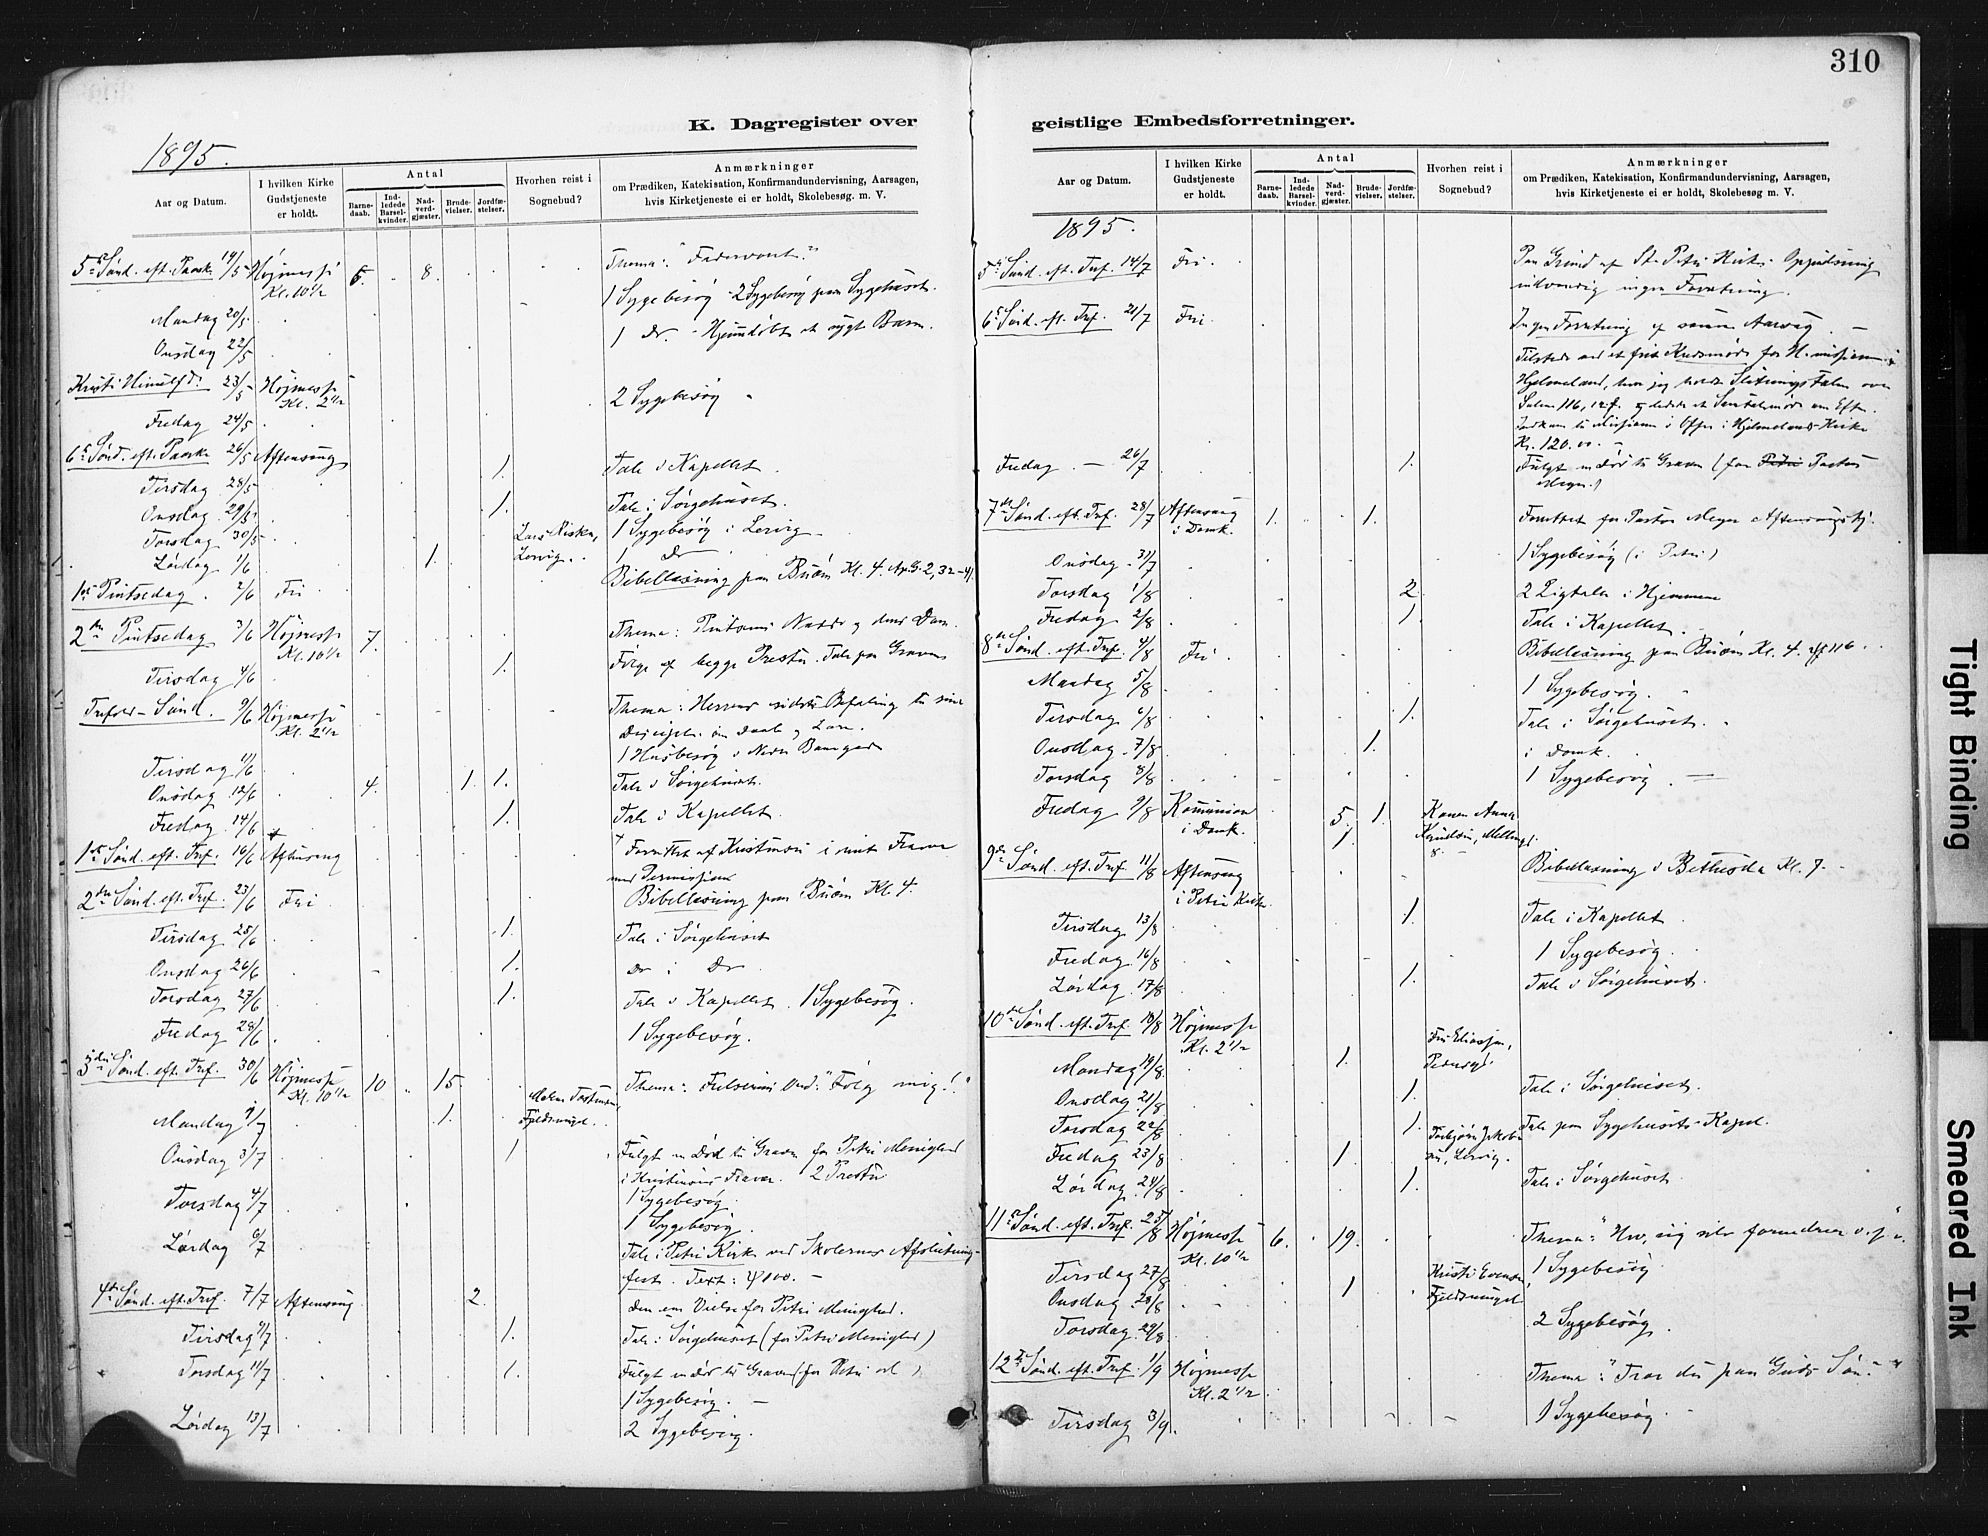 310
K. Dagregister over
geistlige Embedsforretninger.
1895.
Aar og Datum.
I hvilken Kirke Gudstjeneste er holdt.
Antal
Barnedaab.
Indledede Barselkvinder.
Nadverdgjæster.
Brudevielser.
Jordfæstelser.
Hvorhen reist i Sognebud?
Anmærkninger
om Prædiken, Katekisation, Konfirmandundervisning, Aarsagen,
hvis Kirketjeneste ei er holdt, Skolebesøg m. V.
5te Sønd. eft. Paaske 19/5 Højmesse Kl. 10 1/2 8.
1 Sygebesøg - 2 Sygebesøg paa Sygehuset.
Mandag 20/5
Onsdag 22/5
Kristi Himmelfd. 23/5 Højmesse Kl. 2 1/2
2 Sygebesøg
Fredag 24/5
6te Sønd. eft. Paaske 26/5 Aftensang
Tirsdag 28/5 1. Tale i Kapellet.
Onsdag 29/5 1. Tale i Sørgehuset.
Torsdag 30/5 1 Sygebesøg i Lervig
Lørdag 1/6 1. Lervig. 1 Do
1ste Pintsedag. 2/6 Fri. Bibellæsning paa Buøen Kl. 4. Ap.G. 2, 32-41.
2den Pintsedag 3/6 Højmesse Kl. 10 1/2 7.
Tirsdag 4/6 1. Følge af begge Prester. Tale paa Graven
Trefold-Sønd. 9/6 Højmesse Kl. 2 1/2 Thema: Herrens sidste Befaling til sine
Disciple om Daab og Lære.
Tirsdag 11/6 1 Husbesøg
Onsdag 12/6 4. 1. 1. Tale i Sørgehuset.
Fredag 14/6 1. Tale i Kapellet.
1ste Sønd. eft. Tref. 16/6 Aftensang Forrettet af Kristensen i mit Fravær
med Permission
2den Sønd. eft. Tref. 23/6 Fri Bibellæsning paa Buøen Kl. 4.
Tirsdag 25/6 1. Tale i Sørgehuset
Onsdag 26/6 1. Do i Do
Torsdag 27/6 1. Tale i Kapellet. 1 Sygebesøg.
Fredag 28/6 1 Sygebesøg.
3die Sønd. eft. Tref. 30/6 Højmesse Kl. 10 1/2 10 15. Thema: Frelserens Ord: "Følg mig!"
Mandag 1/7 1.
Onsdag 3/7 1 Fulgt en Død til Graven for Petri Menighed
i Kristensens Fravær. 2 Prester
Torsdag 4/7 1 Sygebesøg.
1 Sygebesøg.
Lørdag 6/7 Tale i Petri Kirke ved Skolernes Afslutnings-
fest. Text: ψ 100. -
4de Sønd. eft. Tref. 7/7 Aftensang 2. Den ene Vielse for Petri Menighed.
Tirsdag 9/7 1. Tale i Sørgehuset (for Petri Menighed)
Torsdag 11/7 1. Fulgt en Død til Graven (for Petri
1 Sygebesøg. -
Lørdag 13/7 2 Sygebesøg.
Aar og Datum.
I hvilken Kirke Gudstjeneste er holdt.
Antal
Barnedaab.
Indledede Barselkvinder.
Nadverdgjæster.
Brudevielser.
Jordfæstelser.
Hvorhen reist i Sognebud?
Anmærkninger
om Prædiken, Katekisation, Konfirmandundervisning, Aarsagen,
hvis Kirketjeneste ei er holdt, Skolebesøg m. V.
1895.
5te Sønd. eft. Tref. 14/7 Fri. Paa Grund af St. Petri Kirkes Oppudsning
indvendig ingen Forretning.
6te Sønd. eft. Tref. 21/7 Fri. Ingen Forretning af samme Aarsag. -
Hjelmeland, hvor jeg holdt Slutningstalen over
Salme 116, 12 f.
Kr. 120.00. -
Fredag - 26/7 1. Fulgt en Død til Graven (for Petri Pastor
Meyer.)
7de Sønd. eft. Tref. 28/7 Aftensang i Domk. 1. 1. Forrettet for Pastor Meyer Aftensangstj.
Onsdag 31/7 1 Sygebesøg (i Petri)
Torsdag 1/8 2 2 Ligtaler i Hjemmene
Fredag 2/8 1. Tale i Kapellet.
8de Sønd. eft. Tref. 4/8 Fri. Bibellæsning paa Buøen Kl. 4. ψ 116.
Mandag 5/8 1 Sygebesøg.
Tirsdag 6/8 1. Tale i Sørgehuset.
Onsdag 7/8 1. i Domk.
Torsdag 8/8 1 Sygebesøg. -
Fredag 9/8 Komunion i Domk. 5. 1. Konen Anna
1.
9de Sønd. eft. Tref. 11/8 Aftensang i Petri Kirke. Bibellæsning i Bethesda Kl. 7.
Tirsdag 13/8 1. Tale i Kapellet.
Fredag 16/8 1 Sygebesøg.
Lørdag 17/8 1. Tale i Sørgehuset.
10de Sønd. eft. Tref. 18/8 Højmesse Kl. 2 1/2
Mandag 19/8 1. Fru Eliassen,
Onsdag 21/8 1. Tale i Sørgehuset.
Torsdag 22/8 1. Tale paa Sygehusets Kapel.
Fredag 23/8 1. Lervig.
Lørdag 24/8 1. Tale i Sørgehuset
11te Sønd. eft. Tref. 25/8 Højmesse Kl. 10 1/2 6. 19.
Tirsdag 27/8 1 Sygebesøg
Onsdag 28/8 1
Torsdag 29/8 2 Sygebesøg.
12te Sønd. eft. Tref. 1/9 Højmesse Kl. 2 1/2 Thema: "Tror du paa Guds Søn."
Tirsdag 3/9. 1 Sygebesøg.
Tight Binding
Smeared Ink